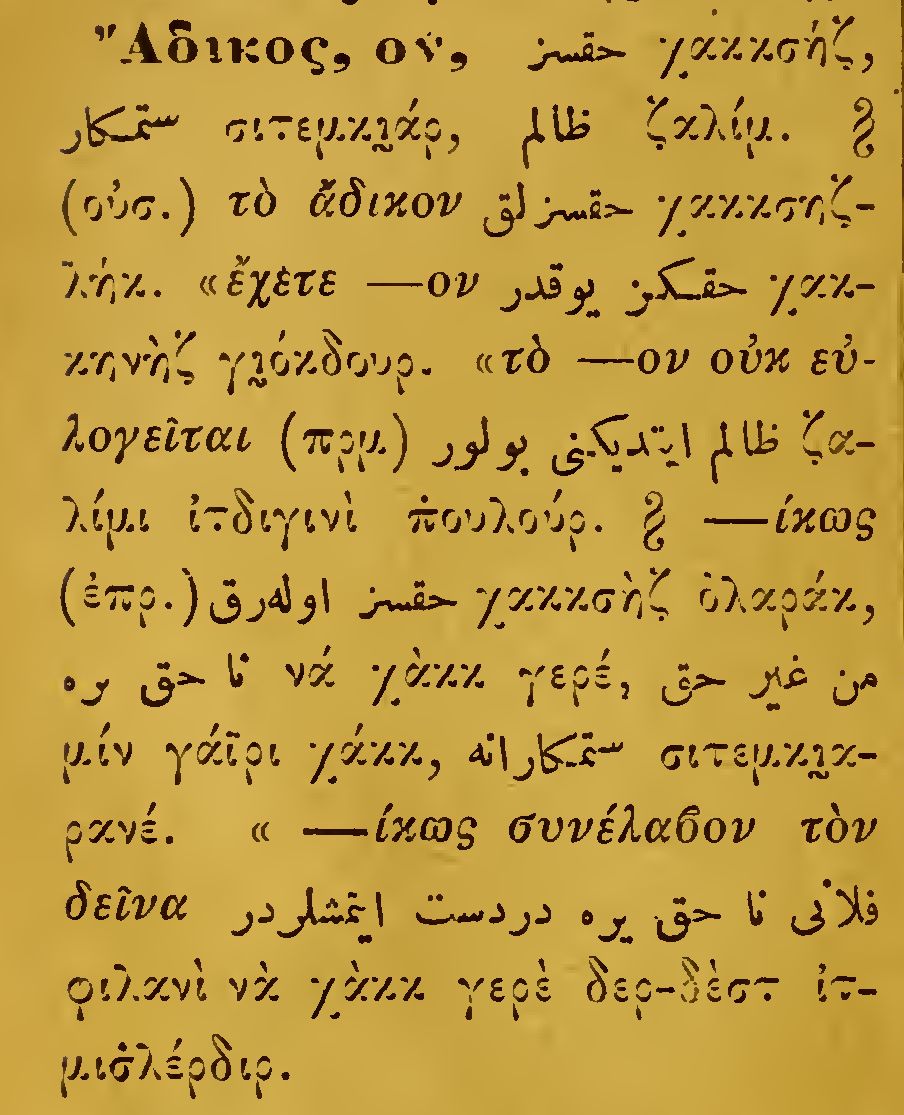 Ἄδικος, ον, حقسز χακκσήζ,
ستمكار σιτεμκι̰άρ, ظالم ζαλίμ. §
(οὐσ.) τὸ ἄδικον حقسزلق χακκσηζ-
λήκ. «ἔχετε —ον حقكز يوقدر χακ-
κηνὴζ γι̰όκδουρ. «τὸ —ον οὐκ εὐ-
λογεῖται (πρμ.) ظالم ايتديكنى بولور ζα-
λίμι ἰτδιγινὶ π̇ουλούρ. § —ίκως
(ἐπρ.) حقسز اولهرق χακκσὴζ ὀλαράκ,
نا حق يره νά χὰκκ γερέ, من غير حق
μίν γάϊρι χάκκ, ستمكارانه σιτεμκι̰α-
ρανέ. « —ίκως συνέλαβον τὸν
δεῖνα فلانى نا حق يره دردست ايتمشلردر
φιλανὶ νὰ χὰκκ γερὲ δερ-δὲστ ἰτ-
μισ̇λέρδιρ.